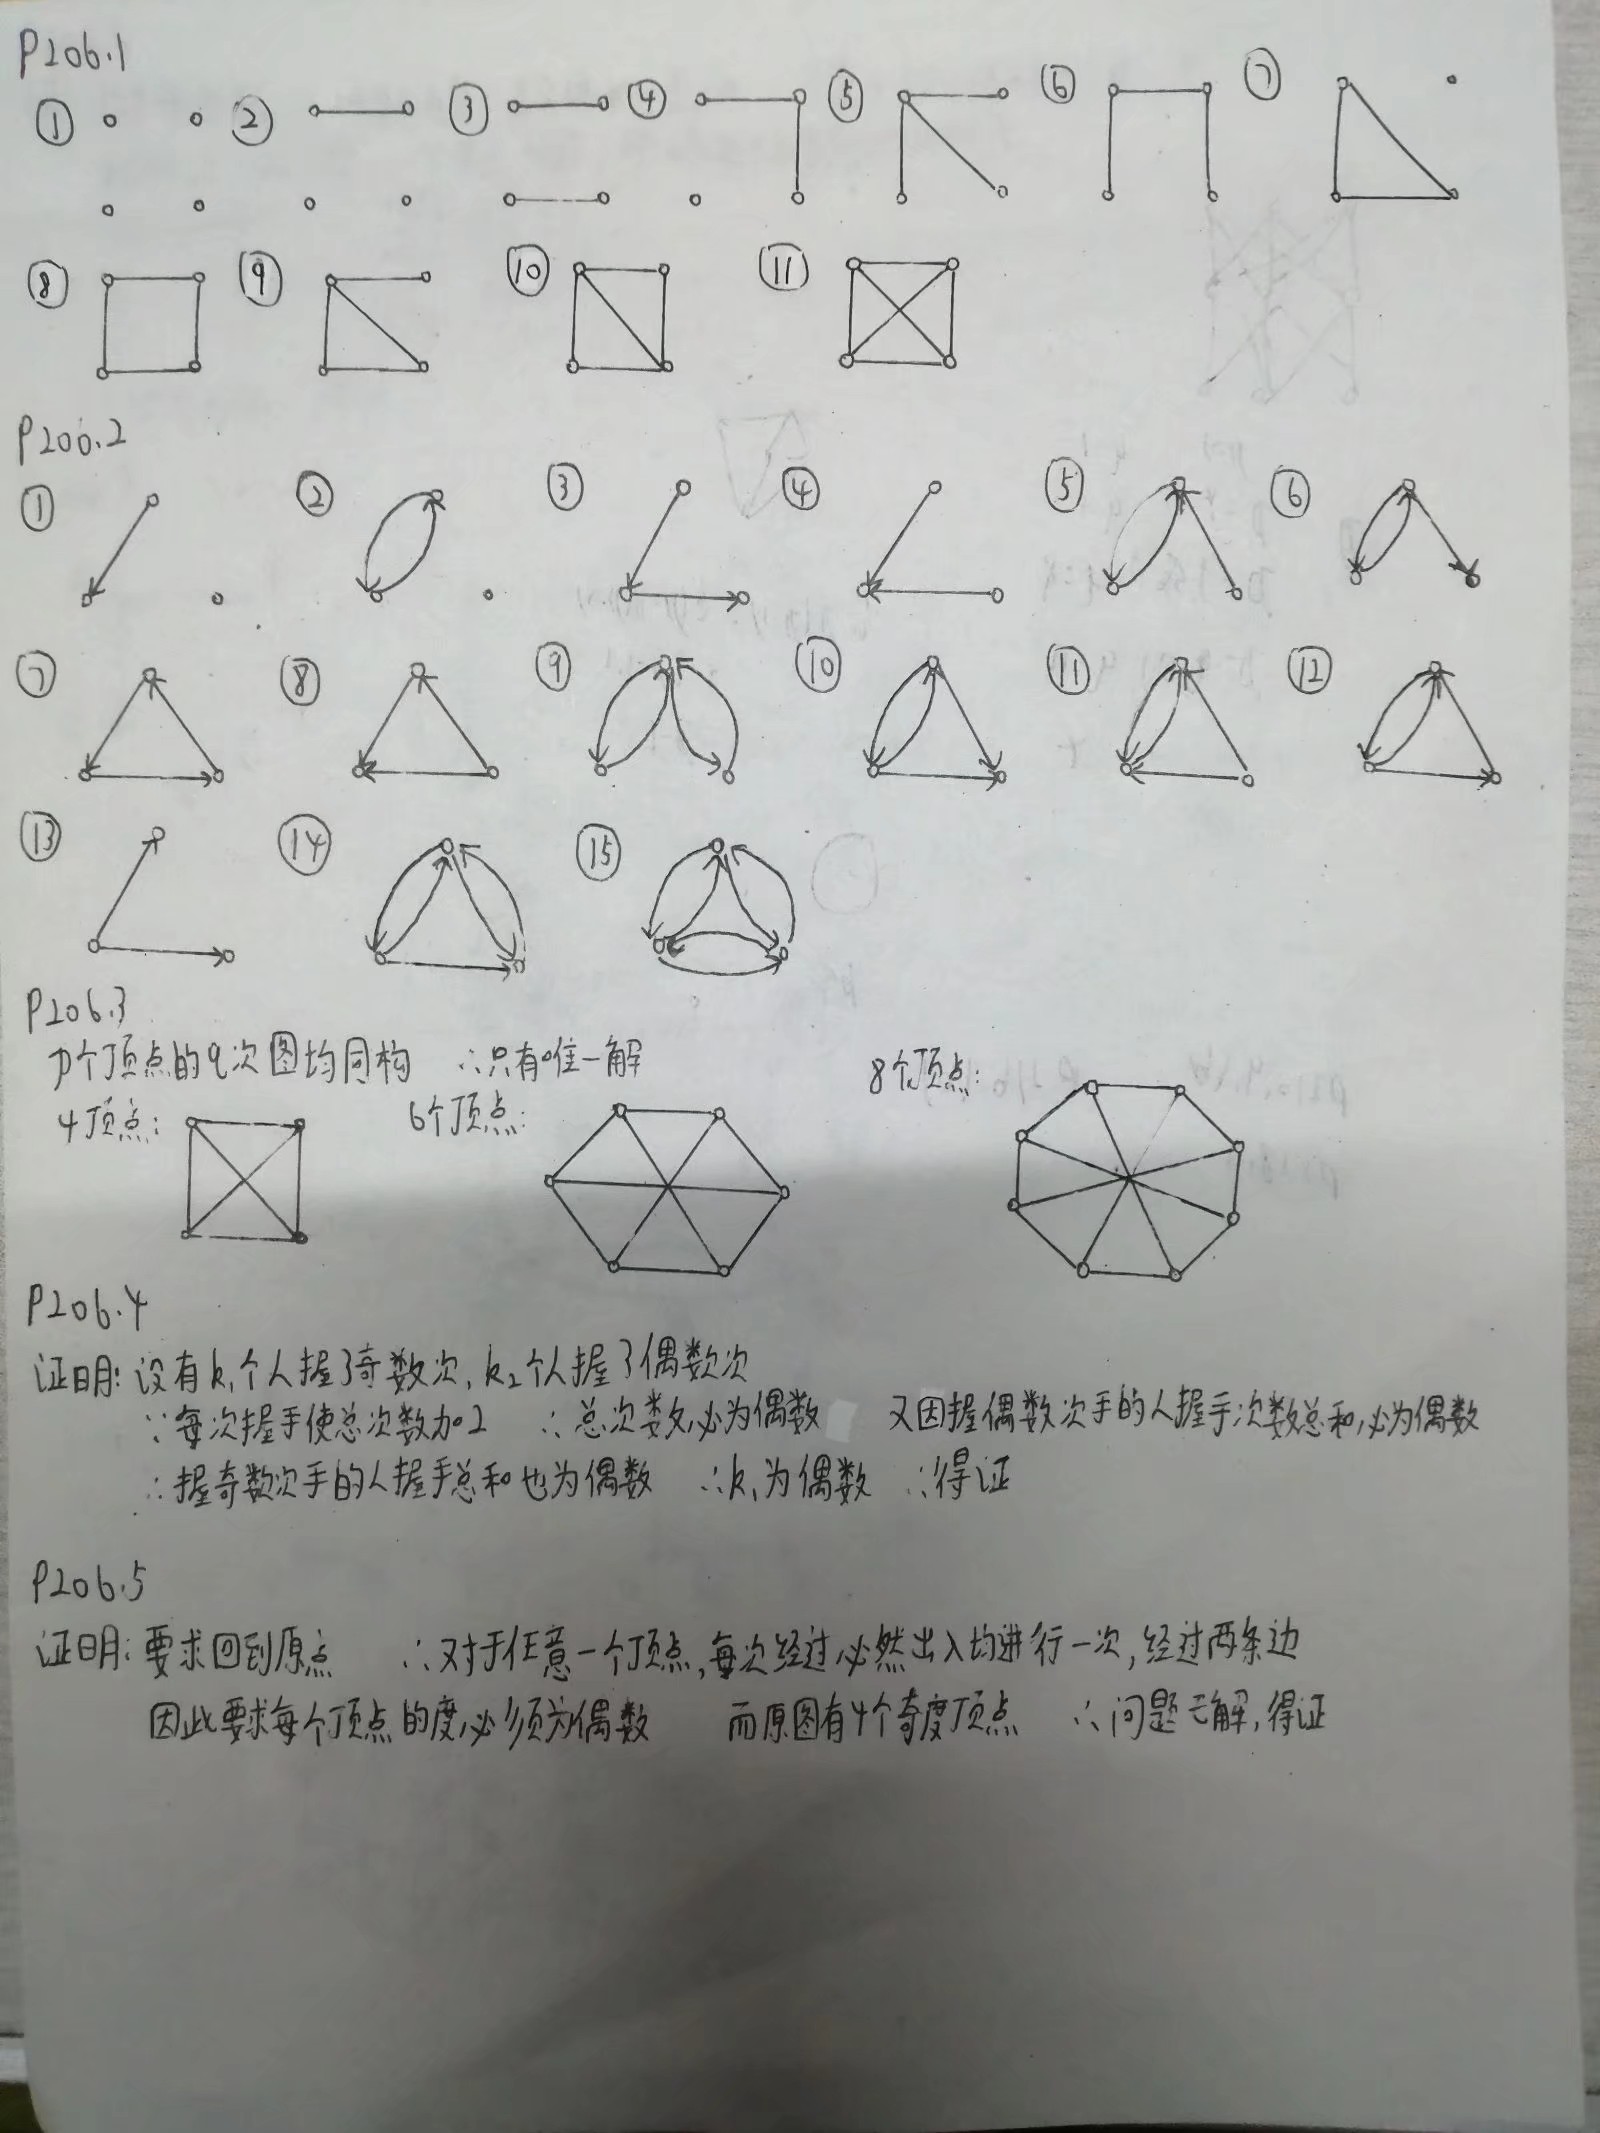 P206.1
① ② ③ ④ ⑤ ⑥ ⑦
⑧ ⑨ ⑩ ⑪
P206.2
① ② ③ ④ ⑤ ⑥
⑦ ⑧ ⑨ ⑩ ⑪ ⑫
⑬ ⑭ ⑮
P206.3
P个顶点的q次图均同构 ∴只有唯一解
4顶点: 6个顶点: 8个顶点:
P206.4
证明: 设有k₁个人握了奇数次, k₂个人握了偶数次
∵每次握手使总次数加2 ∴总次数必为偶数 又因握偶数次手的人握手次数总和必为偶数
∴握奇数次手的人握手总和也为偶数 ∴k₁为偶数 ∴得证
P206.5
证明: 要求回到原点 ∴对于任意一个顶点,每次经过必然出入均进行一次,经过两条边
因此要求每个顶点的度必须为偶数 而原图有4个奇度顶点 ∴问题无解,得证